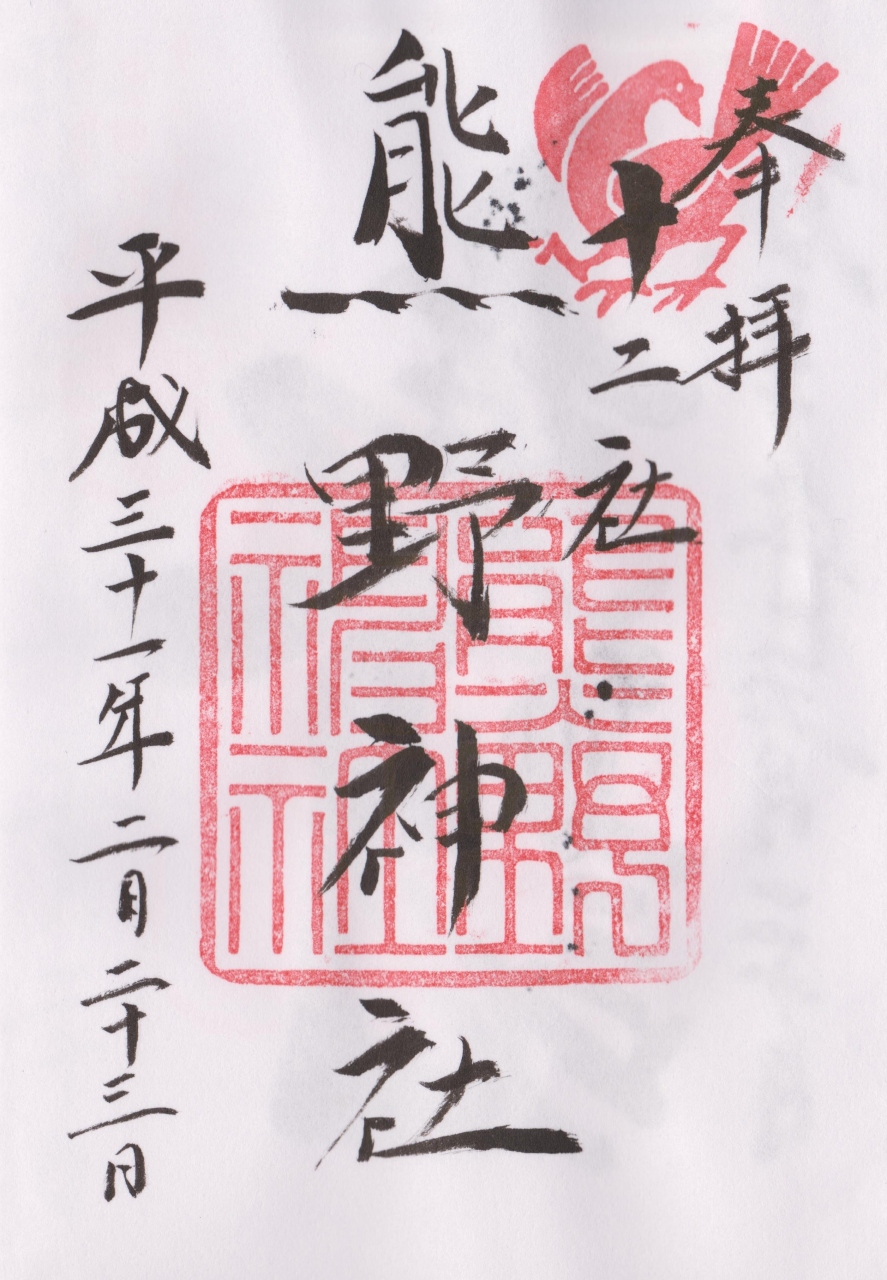 奉拝
十二社
熊野神社
平成三十一年二月二十三日